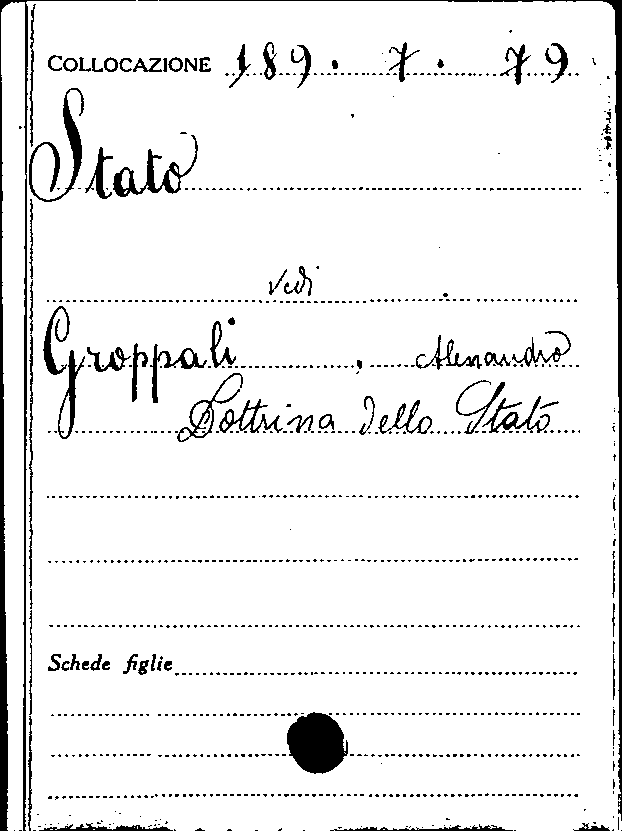 COLLOCAZIONE 189. 7. 79
Stato
vedi
Groppali, Alessandro
Dottrina dello Stato
Schede figlie